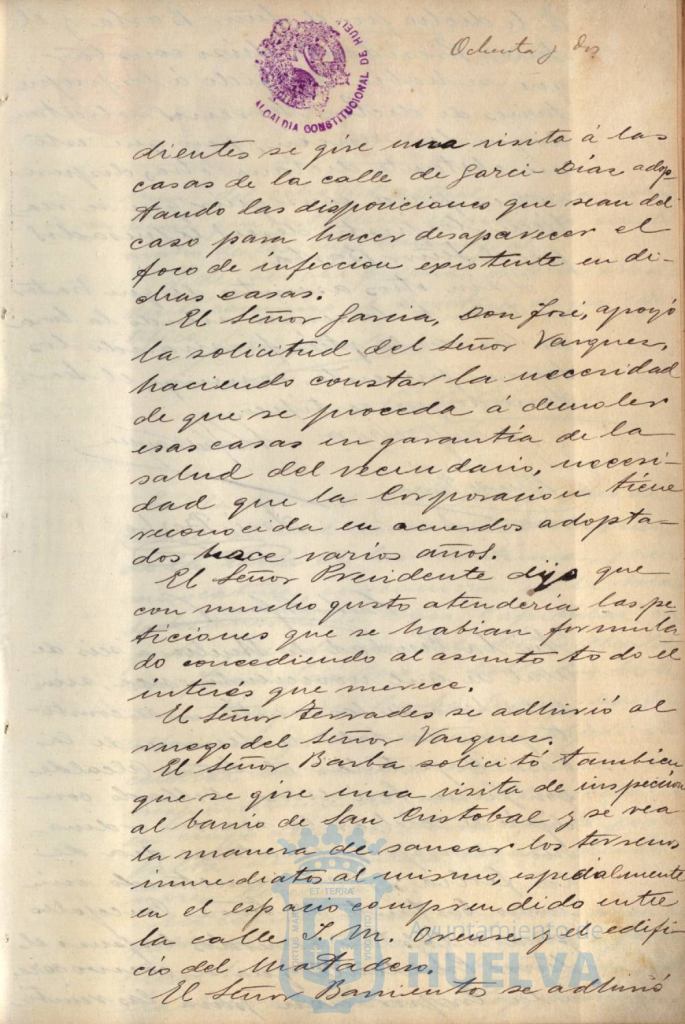 ALCALDIA CONSTITUCIONAL DE HUEL
Ochenta y dos
dientes se gire una visita á las
casas de la calle de Garci-Díaz adop-
tando las disposiciones que sean del
caso para hacer desaparecer el
foco de infeccion existente en di-
chas casas.
El Señor Garcia, Don José, apoyó
la solicitud del Señor Vazquez,
haciendo constar la necesidad
de que se proceda á demoler
esas casas en garantía de la
salud del vecindario, necesi-
dad que la Corporacion tiene
reconocida en acuerdos adopta-
dos hace varios años.
El Señor Presidente dijo que
con mucho gusto atendería las pe-
ticiones que se habian formula-
do concediendo al asunto todo el
interés que merece.
El Señor Terrades se adhirió al
ruego del Señor Vazquez.
El Señor Barba solicitó tambien
que se gire una visita de inspeccion
al barrio de San Cristobal y se vea
la manera de sanear los terrenos
inmediatos al mismo, especialmente
en el espacio comprendido entre
la calle J. M. Orense y el edifi-
cio del Matadero.
El Señor Barrientos se adhirió
ET TERRA
Ayuntamiento de
HUELVA